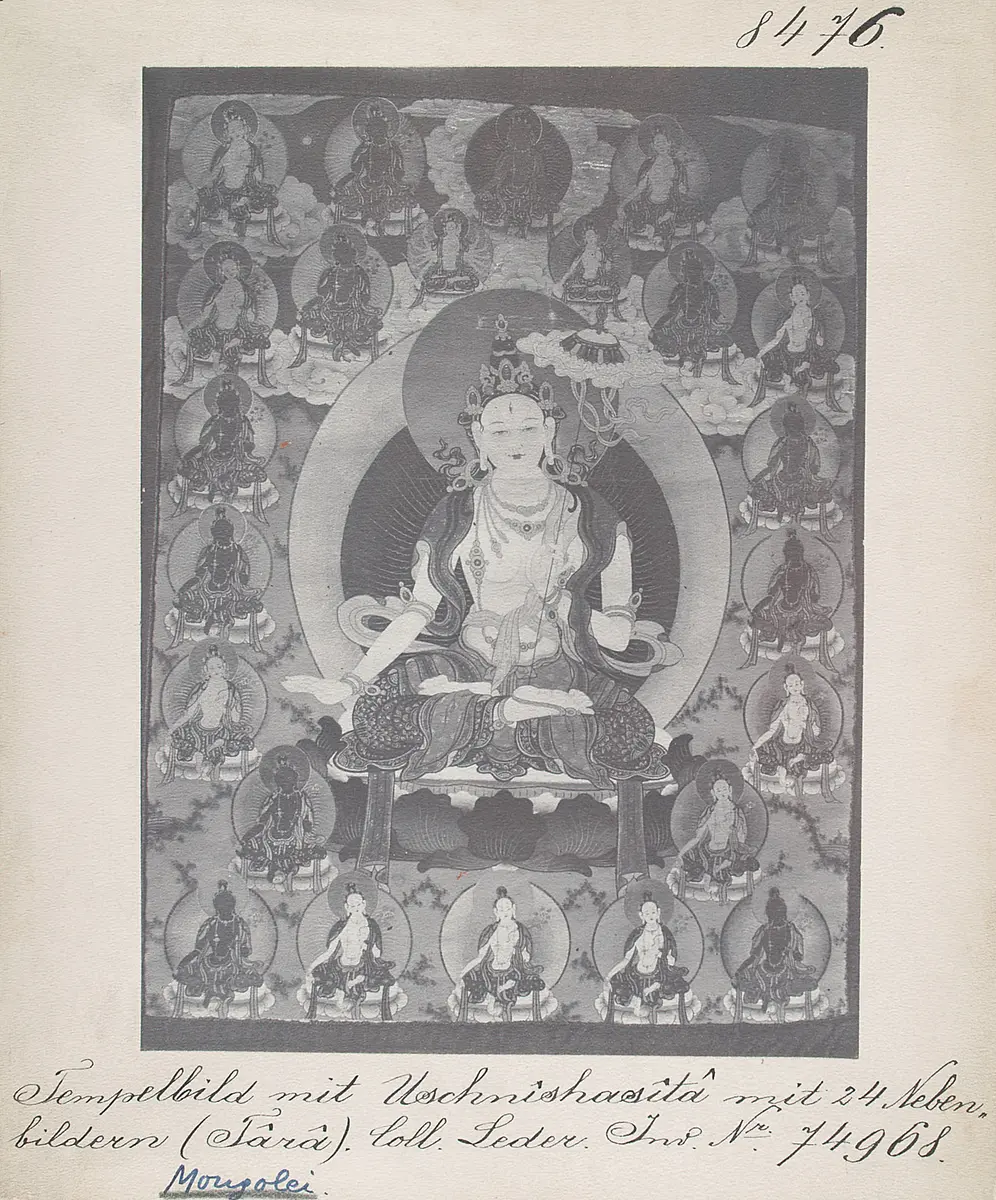 8476.
Tempelbild mit Uschnîshasîtâ mit 24 Neben-
bildern (Târâ). Coll. Leder. Inv. Nr. 74968.
Mongolei.